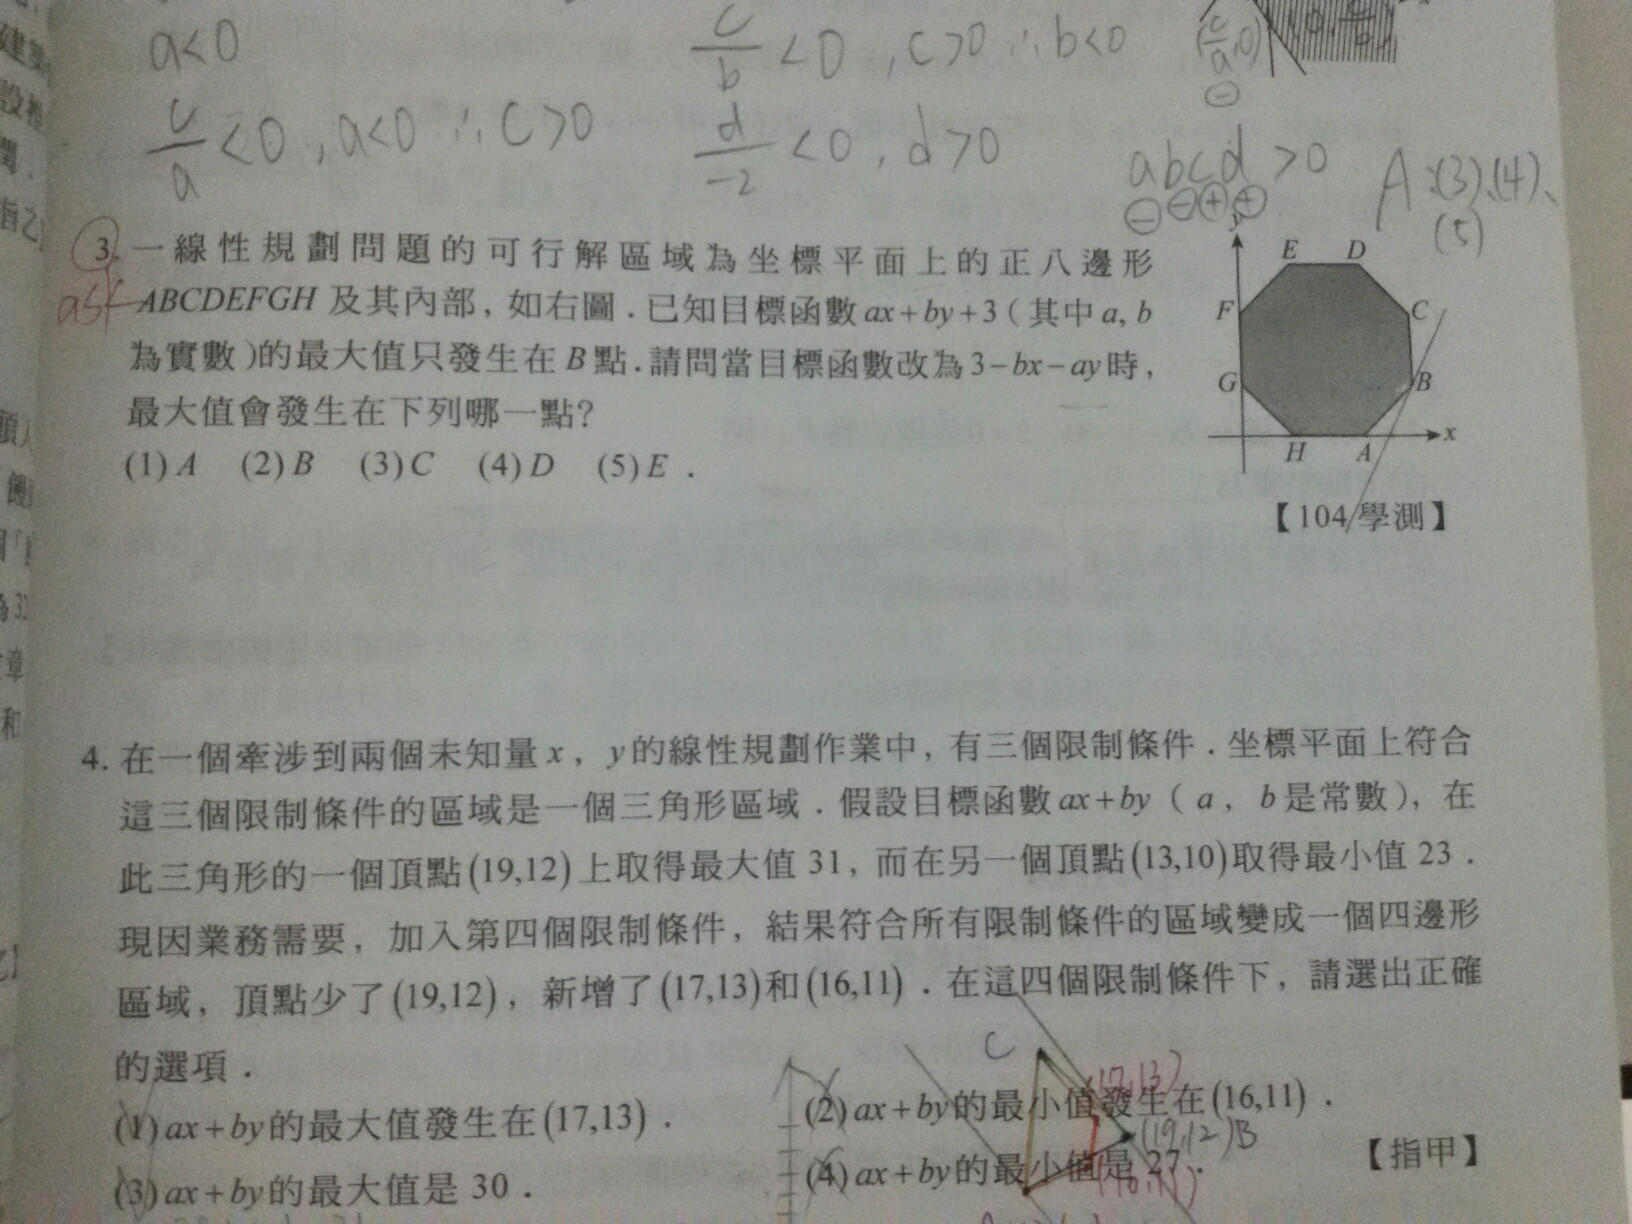 a<0
c/b <0 , c>0 ∴ b<0
c/a <0 , a<0 ∴ c>0
d/-2 <0 , d>0
abcd >0
⊖⊖⊕⊕
A:(3)、(4)、
(5)
3. 一線性規劃問題的可行解區域為坐標平面上的正八邊形
ABCDEFGH 及其內部，如右圖．已知目標函數 ax+by+3（其中 a, b
為實數）的最大值只發生在 B 點．請問當目標函數改為 3−bx−ay 時，
最大值會發生在下列哪一點？
(1) A (2) B (3) C (4) D (5) E．
y
E D
F C
G B
H A x
【104 學測】
4. 在一個牽涉到兩個未知量 x，y 的線性規劃作業中，有三個限制條件．坐標平面上符合
這三個限制條件的區域是一個三角形區域．假設目標函數 ax+by（a，b 是常數），在
此三角形的一個頂點 (19,12) 上取得最大值 31，而在另一個頂點 (13,10) 取得最小值 23．
現因業務需要，加入第四個限制條件，結果符合所有限制條件的區域變成一個四邊形
區域，頂點少了 (19,12)，新增了 (17,13) 和 (16,11)．在這四個限制條件下，請選出正確
的選項．
C
(17,13)
(1) ax+by 的最大值發生在 (17,13)．
(2) ax+by 的最小值發生在 (16,11)．
(19,12)B
【指甲】
(3) ax+by 的最大值是 30．
(4) ax+by 的最小值是 27．
(16,11)